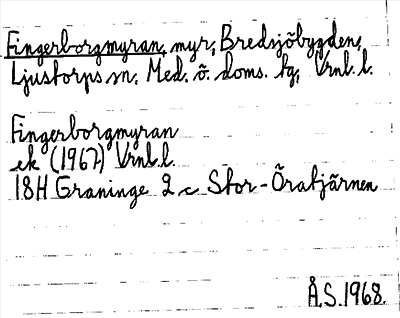 Fingerborgmyran, myr, Bredsjöbygden,
Ljustorps sn, Med. ö. doms. tg, Vrnl. l.
Fingerborgmyran
ek (1967) Vrnl. l.
18H Graninge 2 c Stor-Öratjärnen
Å.S. 1968.